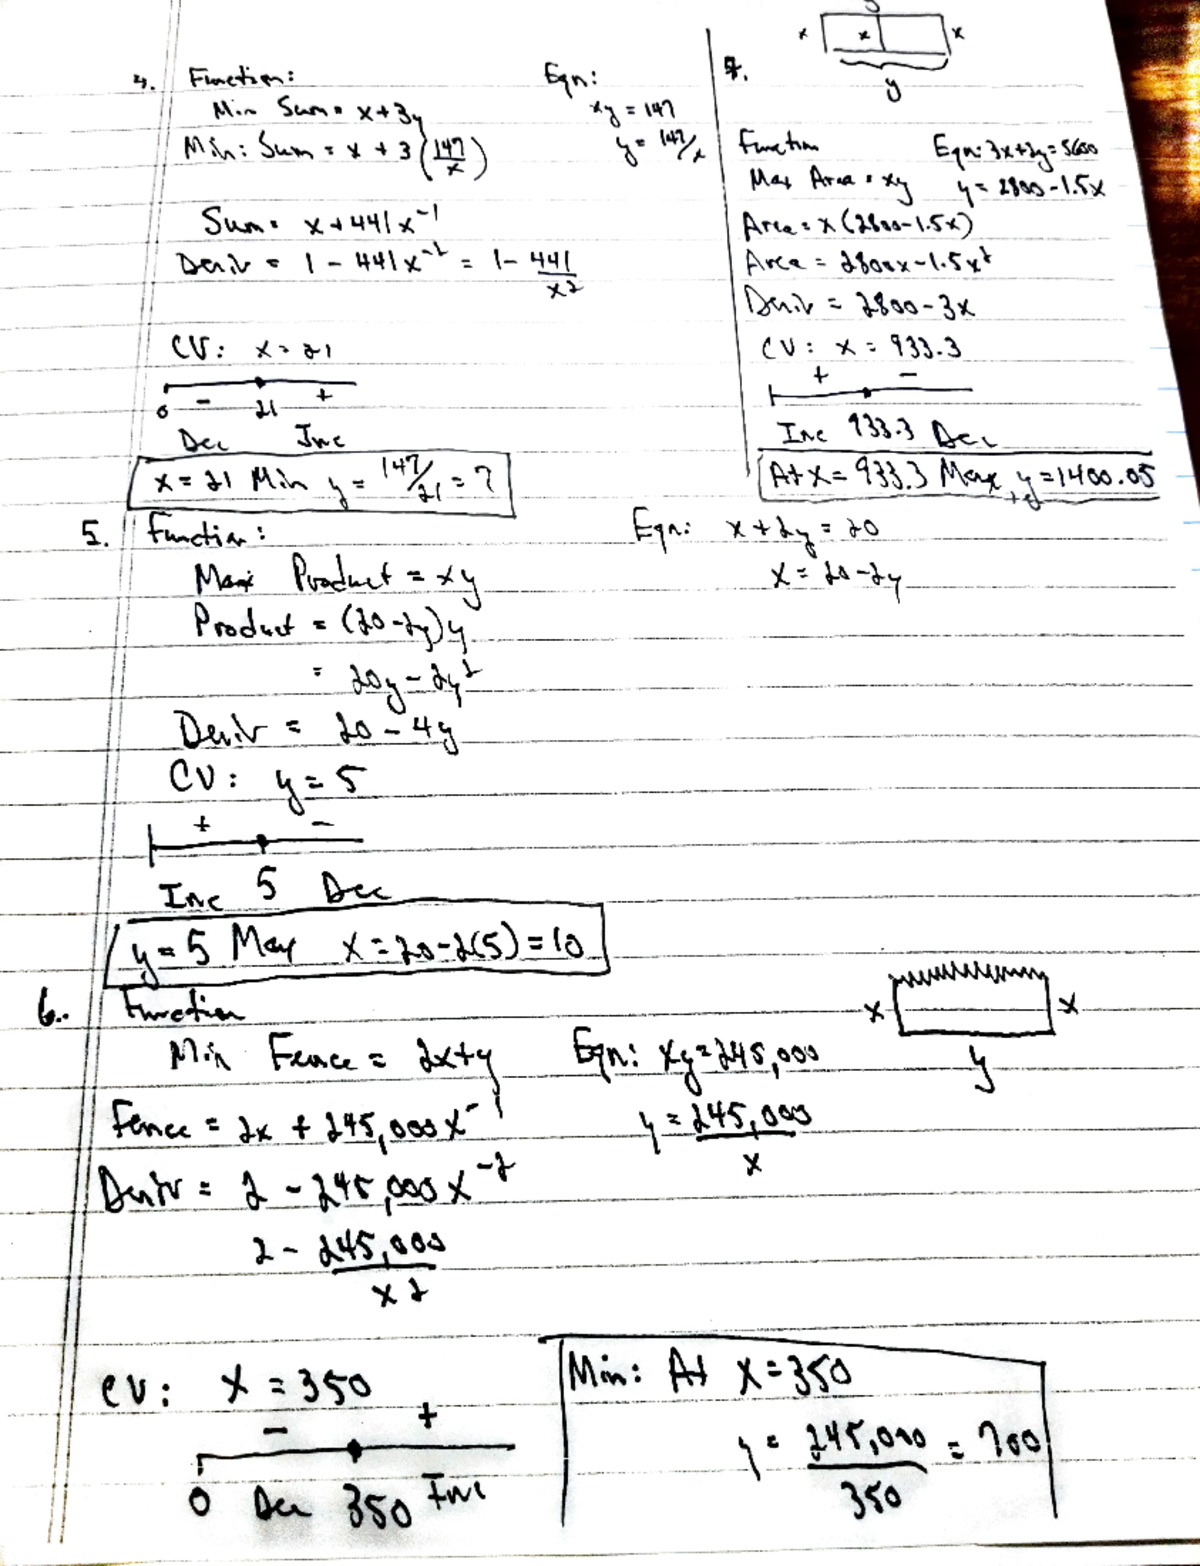 4. Function:
Min Sum = x + 3y
Min: Sum = x + 3(147/x)
Eqn:
xy = 147
y = 147/x
Sum = x + 441x⁻¹
Deriv = 1 - 441x⁻² = 1 - 441/x²
CV: x = 21
- +
0 21
Dec Inc
x = 21 Min y = 147/21 = 7
7.
y
x x x
y
Function
Eqn: 3x+2y=5600
Max Area = xy
y = 2800-1.5x
Area = x(2800-1.5x)
Area = 2800x-1.5x²
Deriv = 2800-3x
CV: x = 933.3
+ -
Inc 933.3 Dec
At x = 933.3 Max y = 1400.05
5. Function:
Eqn: x + 2y = 20
x = 20-2y
Max Product = xy
Product = (20-2y)y
= 20y-2y²
Deriv = 20-4y
CV: y = 5
+ -
Inc 5 Dec
y = 5 Max x = 20-2(5) = 10
6. Function
x x
y
Min Fence = 2x+y
Eqn: xy=245,000
Fence = 2x + 245,000x⁻¹
y = 245,000/x
Deriv = 2 - 245,000x⁻²
2 - 245,000/x²
CV: x = 350
- +
0 Dec 350 Inc
Min: At x=350
y = 245,000/350 = 700